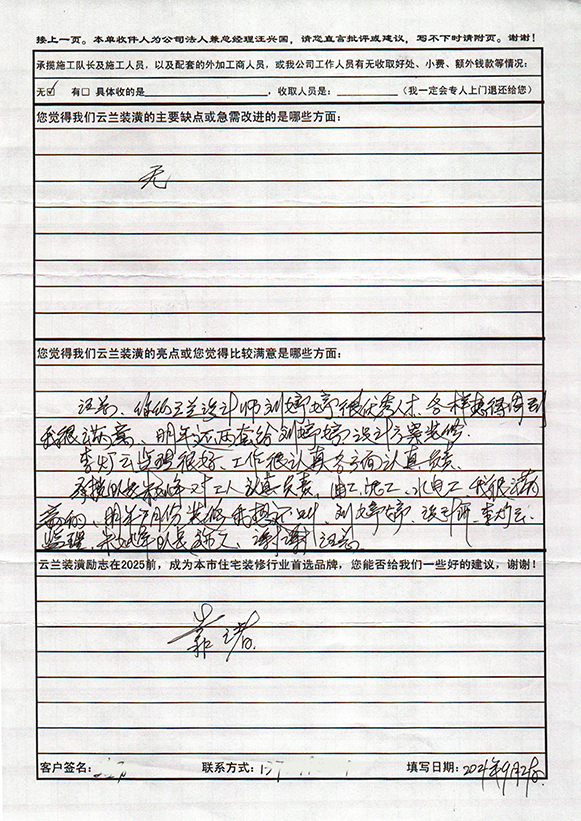 接上一页。本单收件人为公司法人兼总经理汪兴国,请您直言批评或建议,写不下时请附页。谢谢!
承揽施工队长及施工人员,以及配套的外加工商人员,或我公司工作人员有无收取好处、小费、额外钱款等情况:
无☑ 有□ 具体收的是________,收取人员是:________(我一定会专人上门退还给您)
您觉得我们云兰装潢的主要缺点或急需改进的是哪些方面:
无
您觉得我们云兰装潢的亮点或您觉得比较满意是哪些方面:
汪总、你的云兰设计师刘婷婷很优秀人才、各样想得周到
我很满意、明年还两套给刘婷婷设计方案装修.
李灯云监理很好、工作很认真各方面认真负责.
承揽队长 对工人认真负责,电工、泥工、水电工我很满
意的、明年 月份装修我 叫、刘婷婷、设计师、李灯云
监理、 队长 谢谢汪总.
云兰装潢励志在2025前,成为本市住宅装修行业首选品牌,您能否给我们一些好的建议,谢谢!
客户签名: 联系方式: 填写日期:2021年9月2